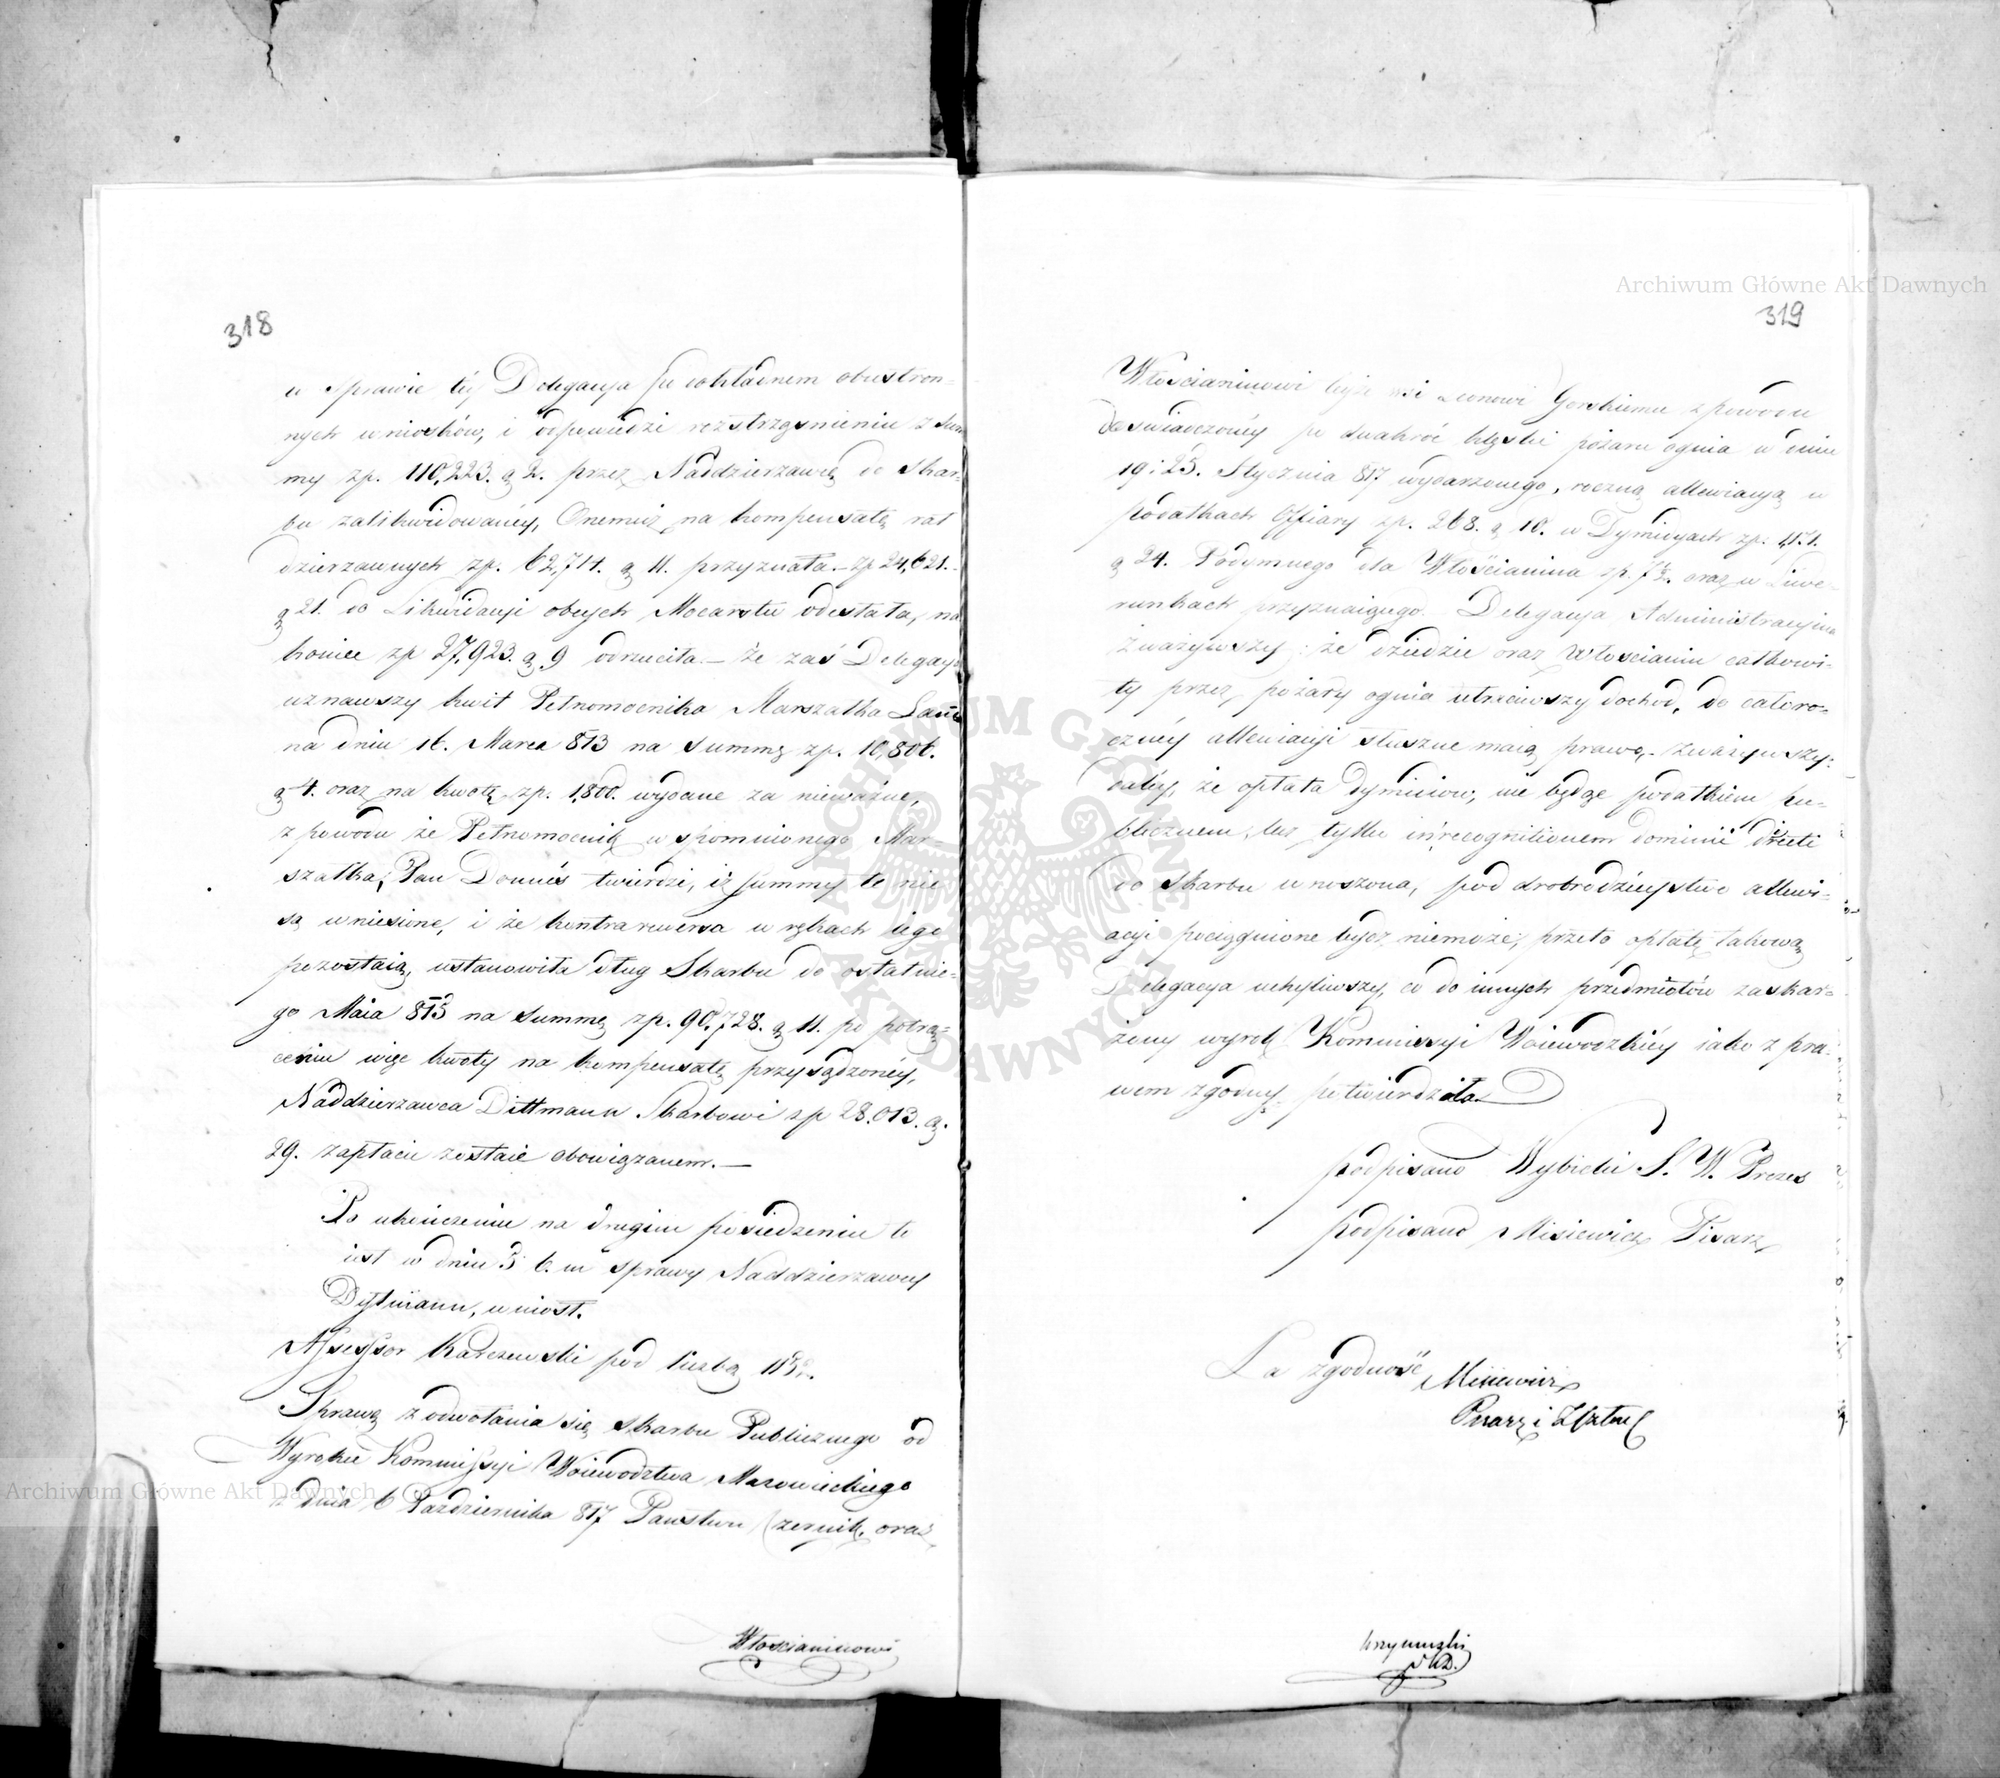 318
w sprawie téy Delegacya po dokładnem obustron-
nych wniosków, i odpowiedzi roztrząśnieniu z Sum
my zp. 110,223. g 2. przez Naddzierzawcę do Skar-
bu zalikwidowanéy, Onemuż na kompensatę rat
dzierzawnych zp. 62,714. g 11. przyznała. – zp 24,621.
g 21. do Likwidacyi obcych Mocarstw odesłała, na
koniec zp 27,923. g. 9 odrzuciła. – Że zaś Delegacya
uznawszy kwit Pełnomocnika Marszałka
na dniu 16. Marca 813 na Summę zp. 10,806.
g 4. oraz na kwotę zp. 1,800. wydane za nieważne,
z powodu że Pełnomocnik wspomnionego Mar-
szałka, Pan twierdzi, iż Summy te nie
są wniesione, i że kontrarewersa w rękach iego
pozostaią, ustanowiła dług Skarbu do ostatnie-
go Maia 815 na Summę zp. 90,728. g 11. po potrą-
ceniu więc kwoty na kompensatę przysądzonéy,
Naddzierzawca Dittmann Skarbowi zp 28.013. g.
29. zapłacić zostaie obowiązanem. –
Po ukończeniu na drugim posiedzeniu to
iest w dniu 3 b. m sprawy Naddzierzawcy
Dyttmann, wniosł.
Assessor Karczewski pod liczbą
Sprawę z odwołania się Skarbu Publicznego od
Wyroku Kommissyi Woiewodztwa Mazowieckiego
z dnia 6 Października 817 Państwu Czernik, oraz
Włościaninowi
319
Włościaninowi teyże wsi Leonowi Gorskiemu z powodu
doświadczonéy po dwakroć klęski pożaru ognia w dniu
19 i 25. Stycznia 817 wydarzonego, roczną allewiacyą w
podatkach Offiary zp. 268. g 10. w Dymicyach zp.
g 24. Podymnego dla Włościanina zp. oraz w Liwe-
runkach przyznaiącego. Delegacya Administracyina
zważywszy: że dziedzic oraz Włościanin całkowi-
ty przez pożary ognia utraciwszy dochód, do całoro-
cznéy allewiacyi słuszne maią prawo. – zważywszy:
daléy, że opłata dymiciow, nie będąc podatkiem pu-
blicznem, lecz tylko in recognitionem dominii directi
do Skarbu wnoszona, pod drobrodzieystwo allewi-
acyi pociągnione bydz niemoże; przeto opłatę takową
Delegacya uchyliwszy, co do innych przedmiotów zaskar-
żony wyrok Kommissyi Woiewodzkiéy iako z pra-
wem zgodny potwierdziła.
podpisano Wybicki S. W. Prezes
podpisano Misiewicz Pisarz
Za zgodność Misiewicz
Pisarz i
Archiwum Główne Akt Dawnych
Archiwum Główne Akt Dawnych
ARCHIWUM GŁÓWNE AKT DAWNYCH